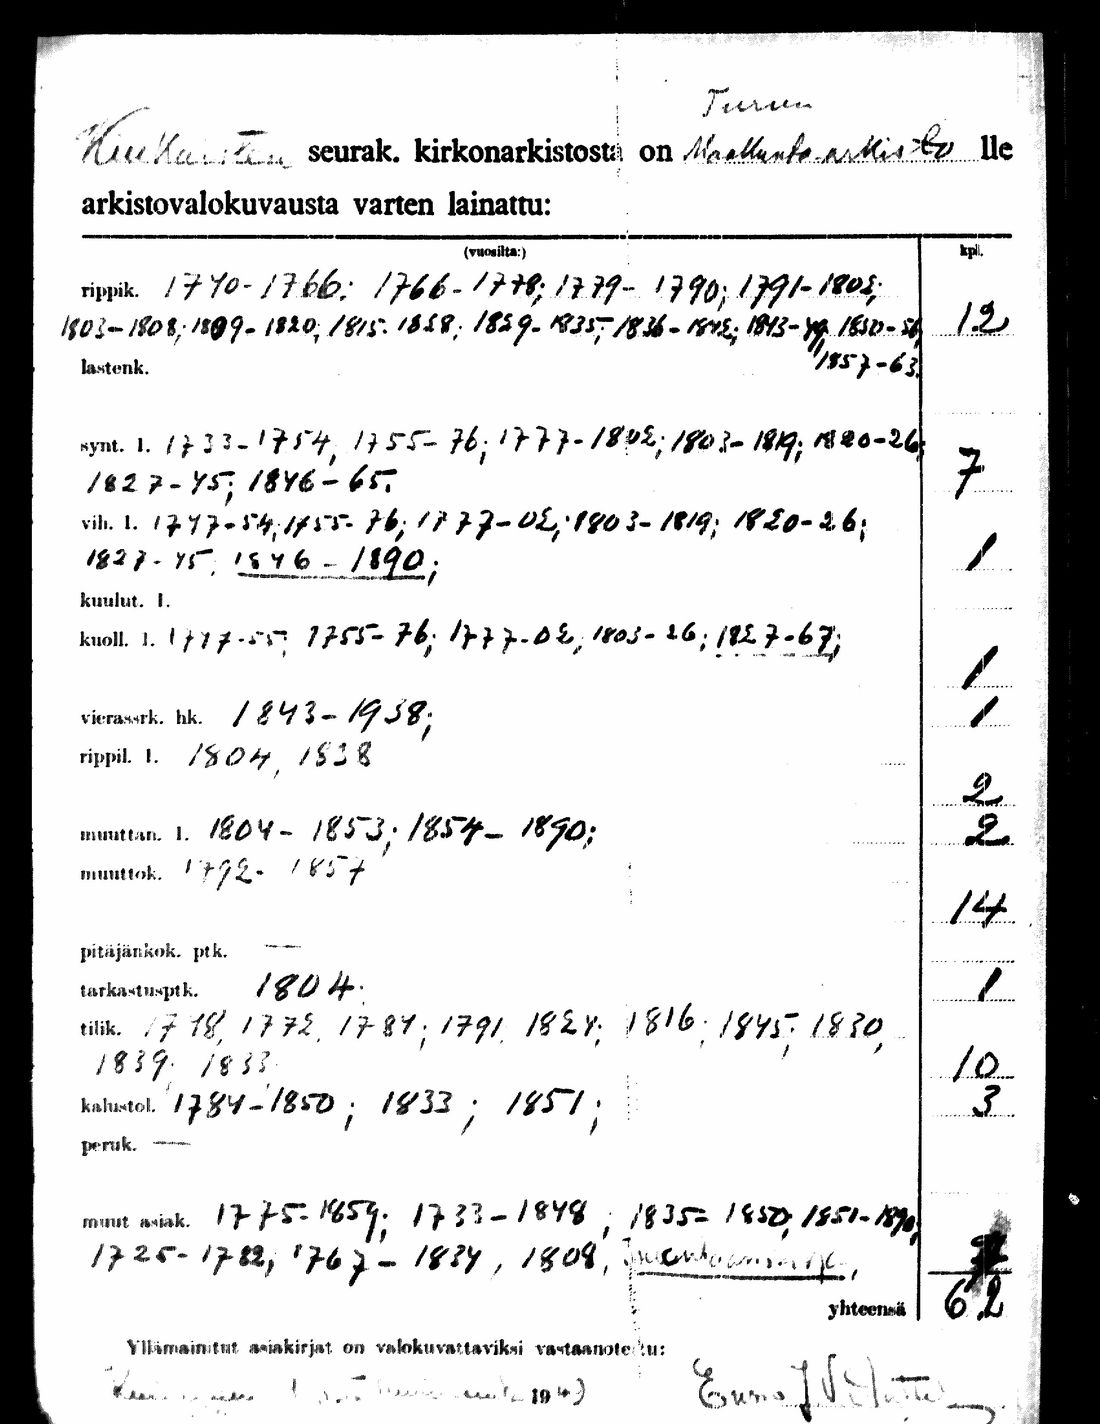 Turun
Kiukaisten seurak. kirkonarkistosta on Maakunta-arkisto lle
arkistovalokuvausta varten lainattu:
(vuosilta:) kpl.
rippik. 1740-1766; 1766-1778; 1779- 1790; 1791-1802;
1803-1808; 1809-1820; 1815-1828; 1829-1835; 1836-1842; 1843-49; 1850-56, 12
1857-63.
lastenk.
synt. l. 1733-1754, 1755-76; 1777-1802; 1803-1819; 1820-26;
1827-45; 1846-65. 7
vih. l. 1747-54; 1755-76; 1777-02; 1803-1819; 1820-26;
1827-45, 1846-1890; 1
kuulut. l.
kuoll. l. 1747-55; 1755-76; 1777-02, 1803-26; 1827-67;
1
vierassrk. hk. 1843-1938; 1
rippil. l. 1804, 1838
2
muuttan. l. 1804- 1853; 1854- 1890; 2
muuttok. 1792- 1857
14
pitäjänkok. ptk. —
tarkastusptk. 1804. 1
tilik. 1748, 1772, 1784; 1791, 1824; 1816; 1845; 1830,
1839; 1833 10
kalustol. 1784-1850; 1833; 1851; 3
peruk. —
muut asiak. 1775-1859; 1733-1848; 1835- 1850; 1851-1890;
1725-1782; 1767- 1834, 1808,
yhteensä 62
Yllämainitut asiakirjat on valokuvattaviksi vastaanotettu:
19